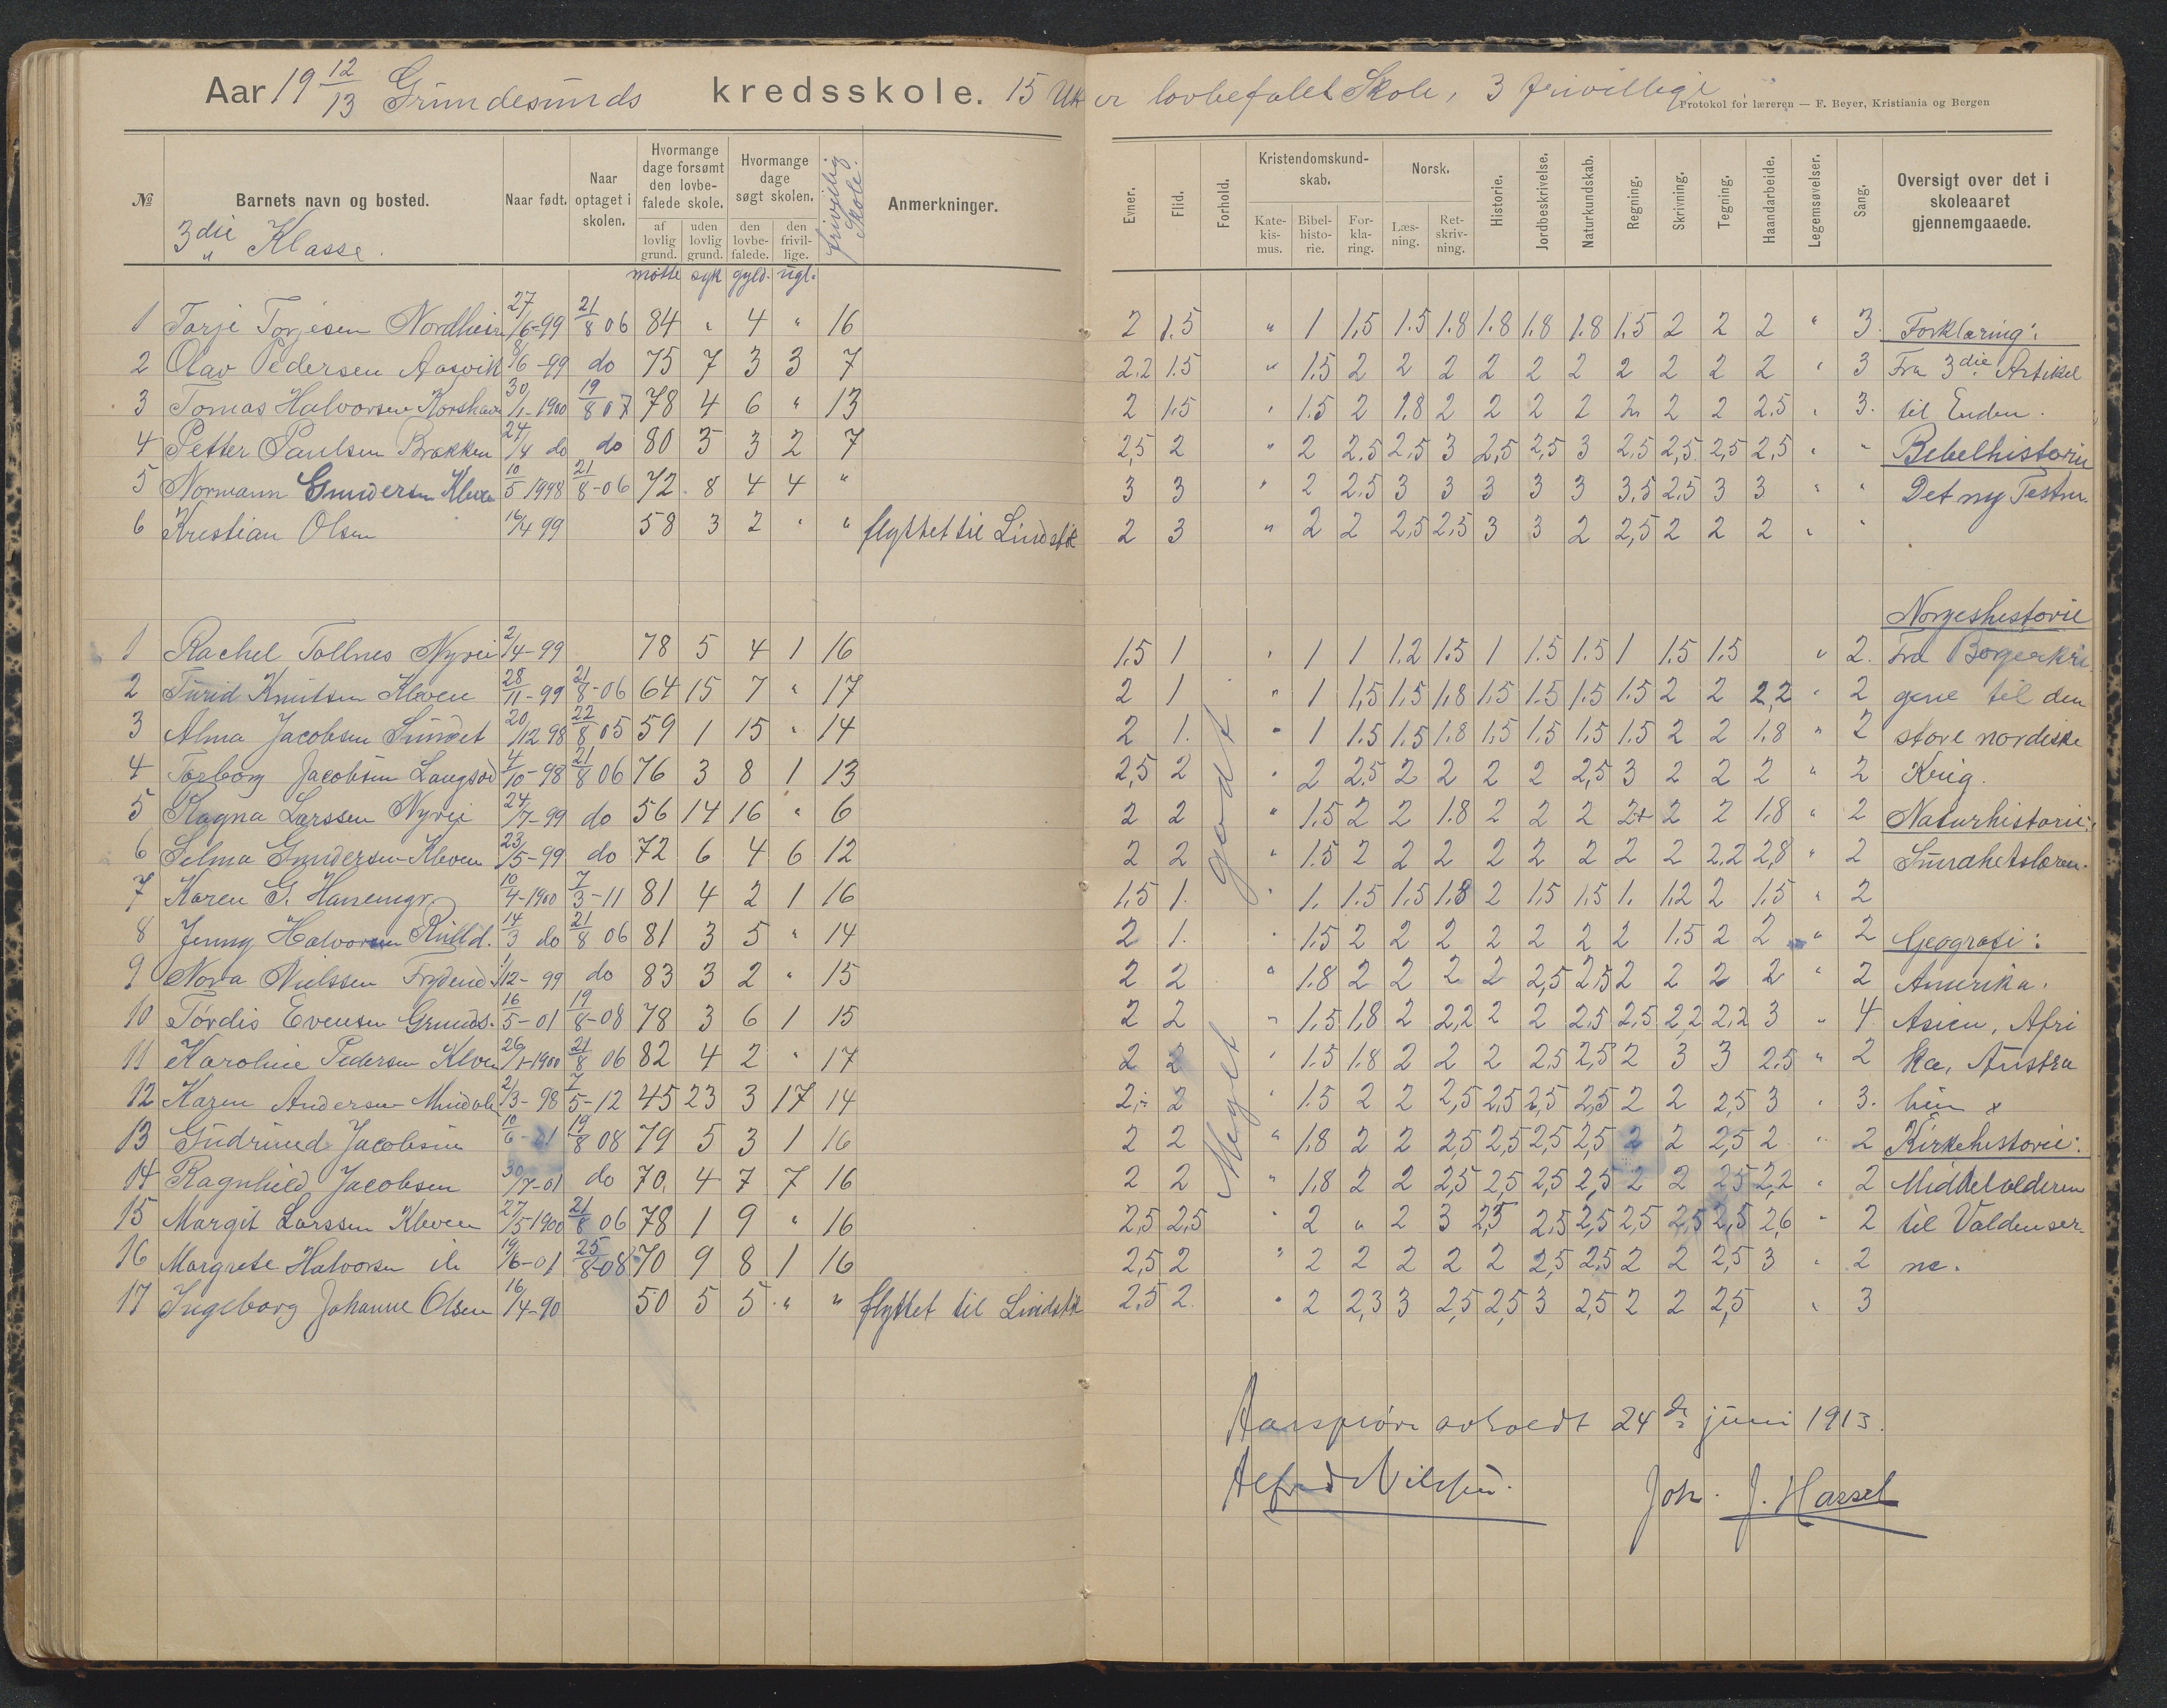 Aar 19 12/13 Grundesunds kredsskole. 15 Uker lovbefalet Skole, 3 frivillige
Protokol for læreren — F. Beyer, Kristiania og Bergen
№ Barnets navn og bosted. Naar født. Naar optaget i skolen. Hvormange dage forsømt den lovbefalede skole. af lovlig grund. uden lovlig grund. Hvormange dage søgt skolen. den lovbefalede. den frivillige. frivillig Skole. Anmerkninger. Evner. Flid. Forhold. Kristendomskundskab. Katekismus. Bibelhistorie. Forklaring. Norsk. Læsning. Retskrivning. Historie. Jordbeskrivelse. Naturkundskab. Regning. Skrivning. Tegning. Haandarbeide. Legemsøvelser. Sang. Oversigt over det i skoleaaret gjennemgaaede.
3die Klasse.
møtte syk gyld. ugl.
1 Tarje Torjesen Nordheim 27/6-99 21/8 06 84 " 4 " 16 2 1.5 " 1 1,5 1.5 1.8 1.8 1.8 1.8 1.5 2 2 2 " 3. Forklaring:
2 Olav Pedersen Aasvik 8/6-99 do 75 7 3 3 7 2.2 1.5 " 1.5 2 2 2 2 2 2 2 2 2 2 " 3 Fra 3die Artikel
3 Tomas Halvorsen Korshavn 30/1-1900 19/8 07 78 4 6 " 13 2 1.5 " 1.5 2 1.8 2 2 2 2 2 2 2 2.5 " 3. til Enden.
4 Petter Paulsen Brækken 24/4 do do 80 5 3 2 7 2,5 2 " 2 2.5 2.5 3 2,5 2,5 3 2.5 2,5 2,5 2,5 " " Bebelhistorie
5 Normann Gundersen Kleven 10/5 1998 21/8-06 72 8 4 4 " 3 3 " 2 2.5 3 3 3 3 3 3.5 2.5 3 3 " " Det ny Testm.
6 Kristian Olsen 16/4 99 58 3 2 " " flyttet til Lindstøl 2 3 " 2 2 2,5 2,5 3 3 2 2,5 2 2 2 " "
Norgeshistorie
1 Rachel Tollnes Nyvei 2/4-99 78 5 4 1 16 1.5 1 " 1 1 1.2 1.5 1 1.5 1.5 1 1.5 1.5 " 2. Fra Borgerkri
2 Turid Knutsen Kleven 28/11-99 21/8-06 64 15 7 " 17 2 1 " 1 1,5 1.5 1,8 1.5 1.5 1.5 1.5 2 2 2,2 " 2 gene til den
3 Alma Jacobsen Sundet 20/12 98 22/8 05 59 1 15 " 14 2 1. " 1 1.5 1.5 1.8 1,5 1.5 1.5 1.5 2 2 1.8 " 2 store nordiske
4 Torborg Jacobsen Langsod 4/10-98 21/8 06 76 3 8 1 13 2,5 2 " 2 2.5 2 2 2 2 2,5 3 2 2 2 " 2 Krig.
5 Ragna Larssen Nyvei 24/7-99 do 56 14 16 " 6 2 2 " 1.5 2 2 1.8 2 2 2 2+ 2 2 1.8 " 2 Naturhistorie:
6 Selma Gundersen Kleven 23/5-99 do 72 6 4 6 12 2 2 " 1.5 2 2 2 2 2 2 2 2 2.2 2,8 " 2 Sundhetslæren.
7 Karen G. Hanemgr. 10/4-1900 7/3-11 81 4 2 1 16 1.5 1. " 1. 1.5 1.5 1.8 2 1.5 1.5 1. 1.2 2 1.5 " 2
8 Jenny Halvorsen Kulld. 14/3 do 21/8 06 81 3 5 " 14 2 1. " 1.5 2 2 2 2 2 2 2 1.5 2 2 " 2 Geografi:
9 Nora Nielssen Frydend. 1/12-99 do 83 3 2 " 15 2 2 " 1.8 2 2 2 2 2,5 2,5 2 2 2 2 " 2 Amerika.
10 Tordis Evensen Grunds. 16/5-01 19/8-08 78 3 6 1 15 2 2 " 1.5 1.8 2 2,2 2 2 2.5 2.5 2,2 2,2 3 " 4 Asien, Afri
11 Karoline Pedersen Kleven 26/1-1900 21/8 06 82 4 2 " 17 2 2 " 1.5 1.8 2 2 2 2,5 2,5 2 3 3 2.5 " 2 ka, Austra
12 Karen Andersen 2/3-98 7/5-12 45 23 3 17 14 2.- 2 " 1.5 2 2 2,5 2,5 2,5 2,5 2 2 2,5 3 " 3. lien
13 Gudrund Jacobsen 10/6-01 19/8 08 79 5 3 1 16 2 2 " 1.8 2 2 2,5 2,5 2,5 2,5 2 2 2,5 2 " 2 Kirkehistorie:
14 Ragnhild Jacobsen 30/7-01 do 70. 4 7 7 16 2 2 " 1.8 2 2 2,5 2,5 2,5 2,5 2 2 2,5 2,2 " 2 Middelalderen
15 Margit Larssen Kleven 27/5-1900 21/8 06 78 1 9 " 16 2,5 2,5 " 2 " 2 3 2,5 2,5 2,5 2,5 2,5 2,5 2,6 " 2 til Valdenser-
16 Margrete Halvorsen 19/6-01 25/8-08 70 9 8 1 16 2,5 2 " 2 2 2 2 2 2,5 2,5 2 2 2,5 3 " 2 ne.
17 Ingeborg Johanne Olsen 16/4-90 50 5 5 " " flyttet til Lindstøl 2,5 2. " 2 2,3 3 2,5 2,5 3 2,5 2 2 2,5 " 3
Meget godt
Aarsprøve avholdt 24de juni 1913.
Alfred Nilssen. Joh. J. Hassel